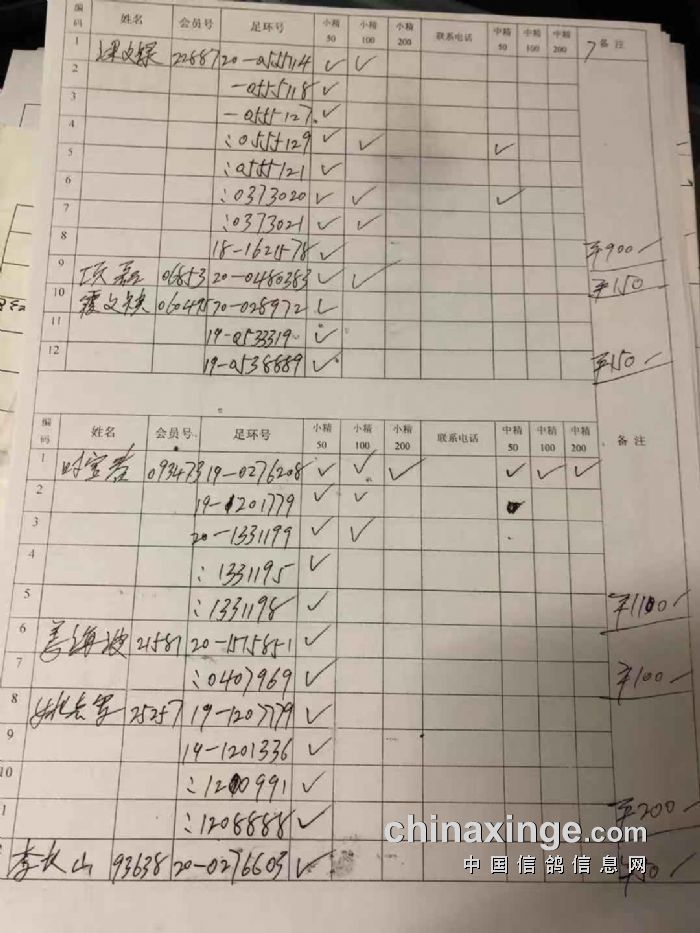 编码 姓名 会员号 足环号 小精50 小精100 小精200 联系电话 中精50 中精100 中精200 备注
1 22887 20-0555114 ✓ ✓
2 -0555118 ✓
3 -0555127 ✓
4 :0555129 ✓ ✓ ✓
5 :0555121 ✓
6 :0373020 ✓ ✓ ✓
7 :0373021 ✓ ✓
8 18-1621578 ✓ ¥900
9 06853 20-0480383 ✓ ✓ ¥150
10 20-028972 ✓
11 19-0533319 ✓
12 19-0538889 ✓ ¥150
编码 姓名 会员号 足环号 小精50 小精100 小精200 联系电话 中精50 中精100 中精200 备注
1 时宝春 093473 19-0276208 ✓ ✓ ✓ ✓ ✓ ✓
2 19-1201779 ✓ ✓
3 20-1331199 ✓ ✓
4 :1331195 ✓
5 :1331198 ✓ ¥1100
6 姜海波 21587 20-1575851 ✓
7 :0407969 ✓ ¥100
8 25257 19-1207779 ✓
9 19-1201336 ✓
10 :1210991 ✓
1 :1208888 ✓ ¥200
李长山 93638 20-0276603 ✓ ¥50
chinaxinge.com
中国信鸽信息网